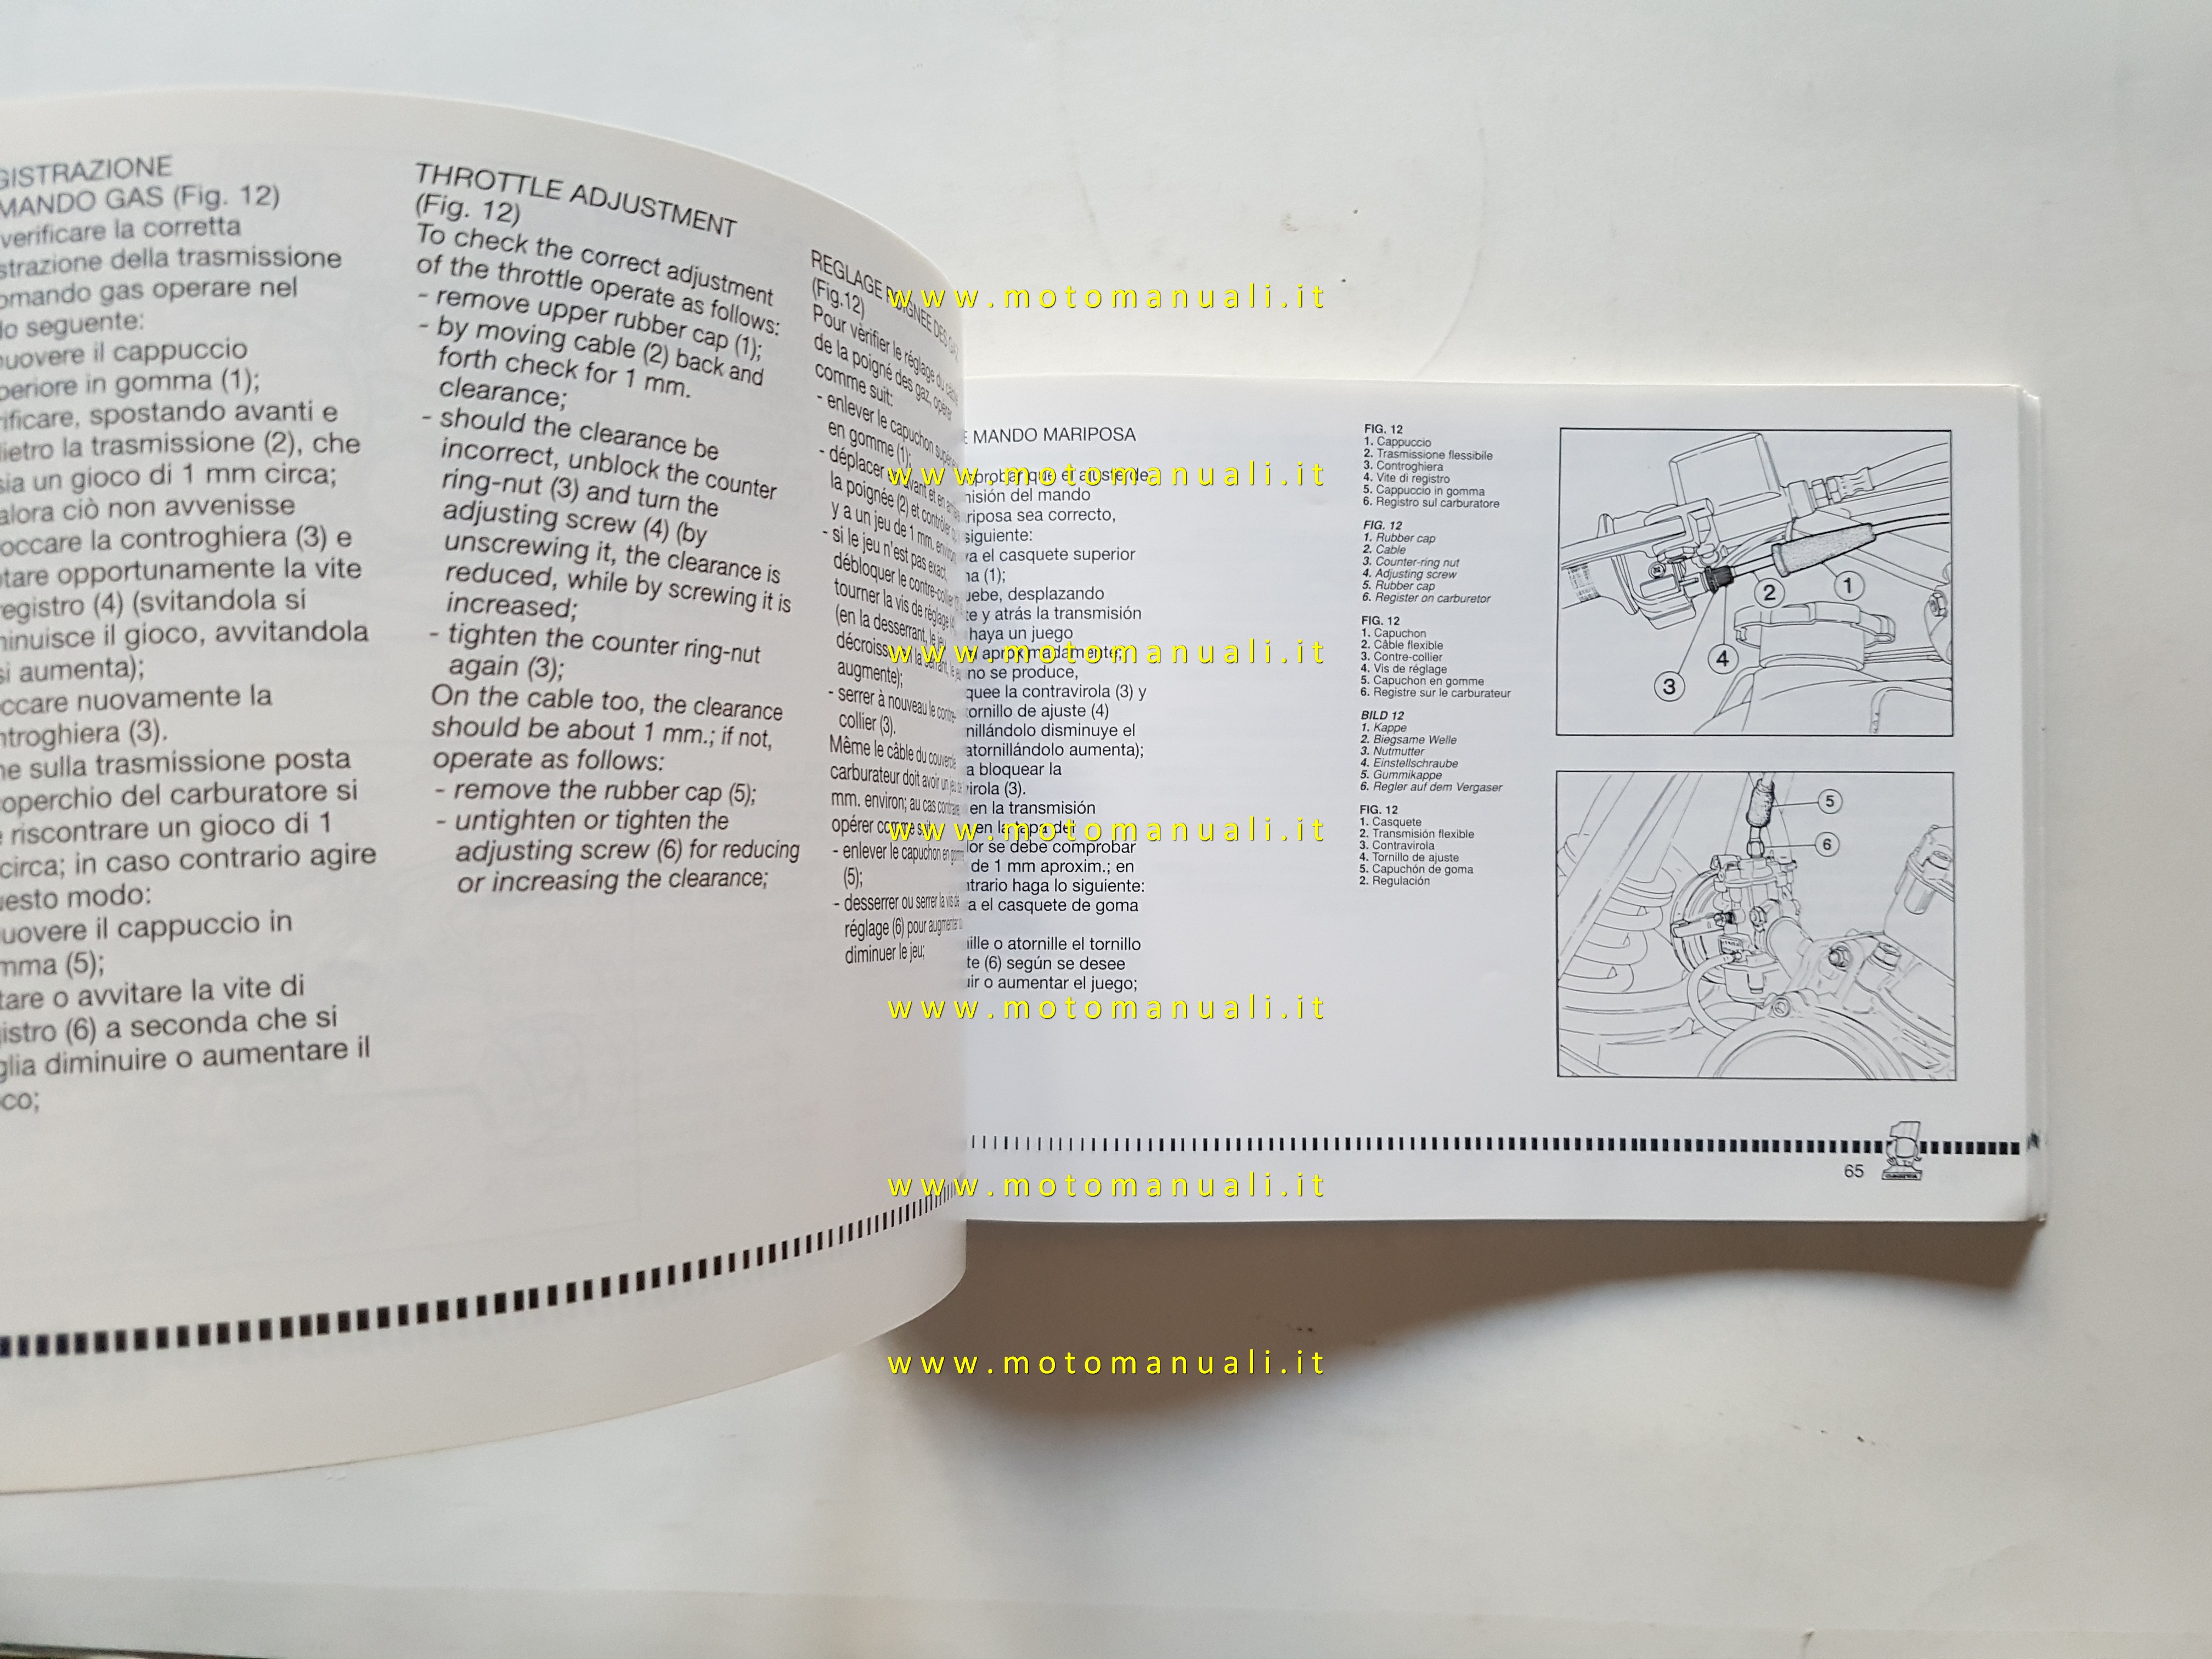 GISTRAZIONE
MANDO GAS (Fig. 12)
verificare la corretta
strazione della trasmissione
omando gas operare nel
do seguente:
uovere il cappuccio
periore in gomma (1);
rificare, spostando avanti e
ietro la trasmissione (2), che
sia un gioco di 1 mm circa;
alora ciò non avvenisse
occare la controghiera (3) e
tare opportunamente la vite
registro (4) (svitandola si
minuisce il gioco, avvitandola
si aumenta);
ccare nuovamente la
ntroghiera (3).
ne sulla trasmissione posta
operchio del carburatore si
e riscontrare un gioco di 1
circa; in caso contrario agire
uesto modo:
uovere il cappuccio in
mma (5);
tare o avvitare la vite di
istro (6) a seconda che si
glia diminuire o aumentare il
co;
THROTTLE ADJUSTMENT
(Fig. 12)
To check the correct adjustment
of the throttle operate as follows:
- remove upper rubber cap (1);
- by moving cable (2) back and
forth check for 1 mm.
clearance;
- should the clearance be
incorrect, unblock the counter
ring-nut (3) and turn the
adjusting screw (4) (by
unscrewing it, the clearance is
reduced, while by screwing it is
increased;
- tighten the counter ring-nut
again (3);
On the cable too, the clearance
should be about 1 mm.; if not,
operate as follows:
- remove the rubber cap (5);
- untighten or tighten the
adjusting screw (6) for reducing
or increasing the clearance;
REGLAGE POIGNEE DES GAZ
(Fig.12)
Pour vèrifier le réglage du cable
de la poigné des gaz, opérer
comme suit:
- enlever le capuchon supérieur
en gomme (1);
- déplacer avant et en
la poignée (2) et contrôler
y a un jeu de 1 mm. environ
- si le jeu n'est pas exact,
débloquer le contre-collier
tourner la vis de réglage
(en la desserrant, le jeu
la serrant, le
augmente);
- serrer à nouveau le contre-
collier (3).
Même le câble du couvercle
carburateur doit avoir un jeu de
mm. environ; au cas contraire
opérer comme suit
- enlever le capuchon en gomme
(5);
- desserrer ou serrer la vis de
réglage (6) pour augmenter
diminuer le jeu;
E MANDO MARIPOSA
probar que el ajuste de
misión del mando
riposa sea correcto,
siguiente:
va el casquete superior
na (1);
uebe, desplazando
te y atrás la transmisión
haya un juego
aproximadamente;
no se produce,
quee la contravirola (3) y
tornillo de ajuste (4)
nillándolo disminuye el
atornillándolo aumenta);
a bloquear la
virola (3).
en la transmisión
en la tapa del
lor se debe comprobar
de 1 mm aproxim.; en
ntrario haga lo siguiente:
a el casquete de goma
ille o atornille el tornillo
te (6) según se desee
uir o aumentar el juego;
FIG. 12
1. Cappuccio
2. Trasmissione flessibile
3. Controghiera
4. Vite di registro
5. Cappuccio in gomma
6. Registro sul carburatore
FIG. 12
1. Rubber cap
2. Cable
3. Counter-ring nut
4. Adjusting screw
5. Rubber cap
6. Register on carburetor
FIG. 12
1. Capuchon
2. Câble flexible
3. Contre-collier
4. Vis de réglage
5. Capuchon en gomme
6. Registre sur le carburateur
BILD 12
1. Kappe
2. Biegsame Welle
3. Nutmutter
4. Einstellschraube
5. Gummikappe
6. Regler auf dem Vergaser
FIG. 12
1. Casquete
2. Transmisión flexible
3. Contravirola
4. Tornillo de ajuste
5. Capuchón de goma
2. Regulación
1
2
4
3
5
6
65
www.motomanuali.it
www.motomanuali.it
www.motomanuali.it
www.motomanuali.it
www.motomanuali.it
www.motomanuali.it
www.motomanuali.it